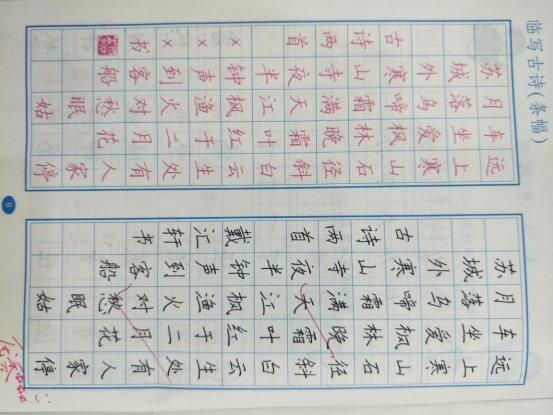 临写古诗(条幅)
远上寒山石径斜白云生处有人家停
车坐爱枫林晚霜叶红于二月花
月落乌啼霜满天江枫渔火对愁眠姑
苏城外寒山寺夜半钟声到客船
古诗两首 ×××书
远上寒山石径斜白云生处有人家停
车坐爱枫林晚霜叶红于二月花
月落乌啼霜满天江枫渔火对愁眠姑
苏城外寒山寺夜半钟声到客船
古诗两首 戴汇轩书
优秀
6